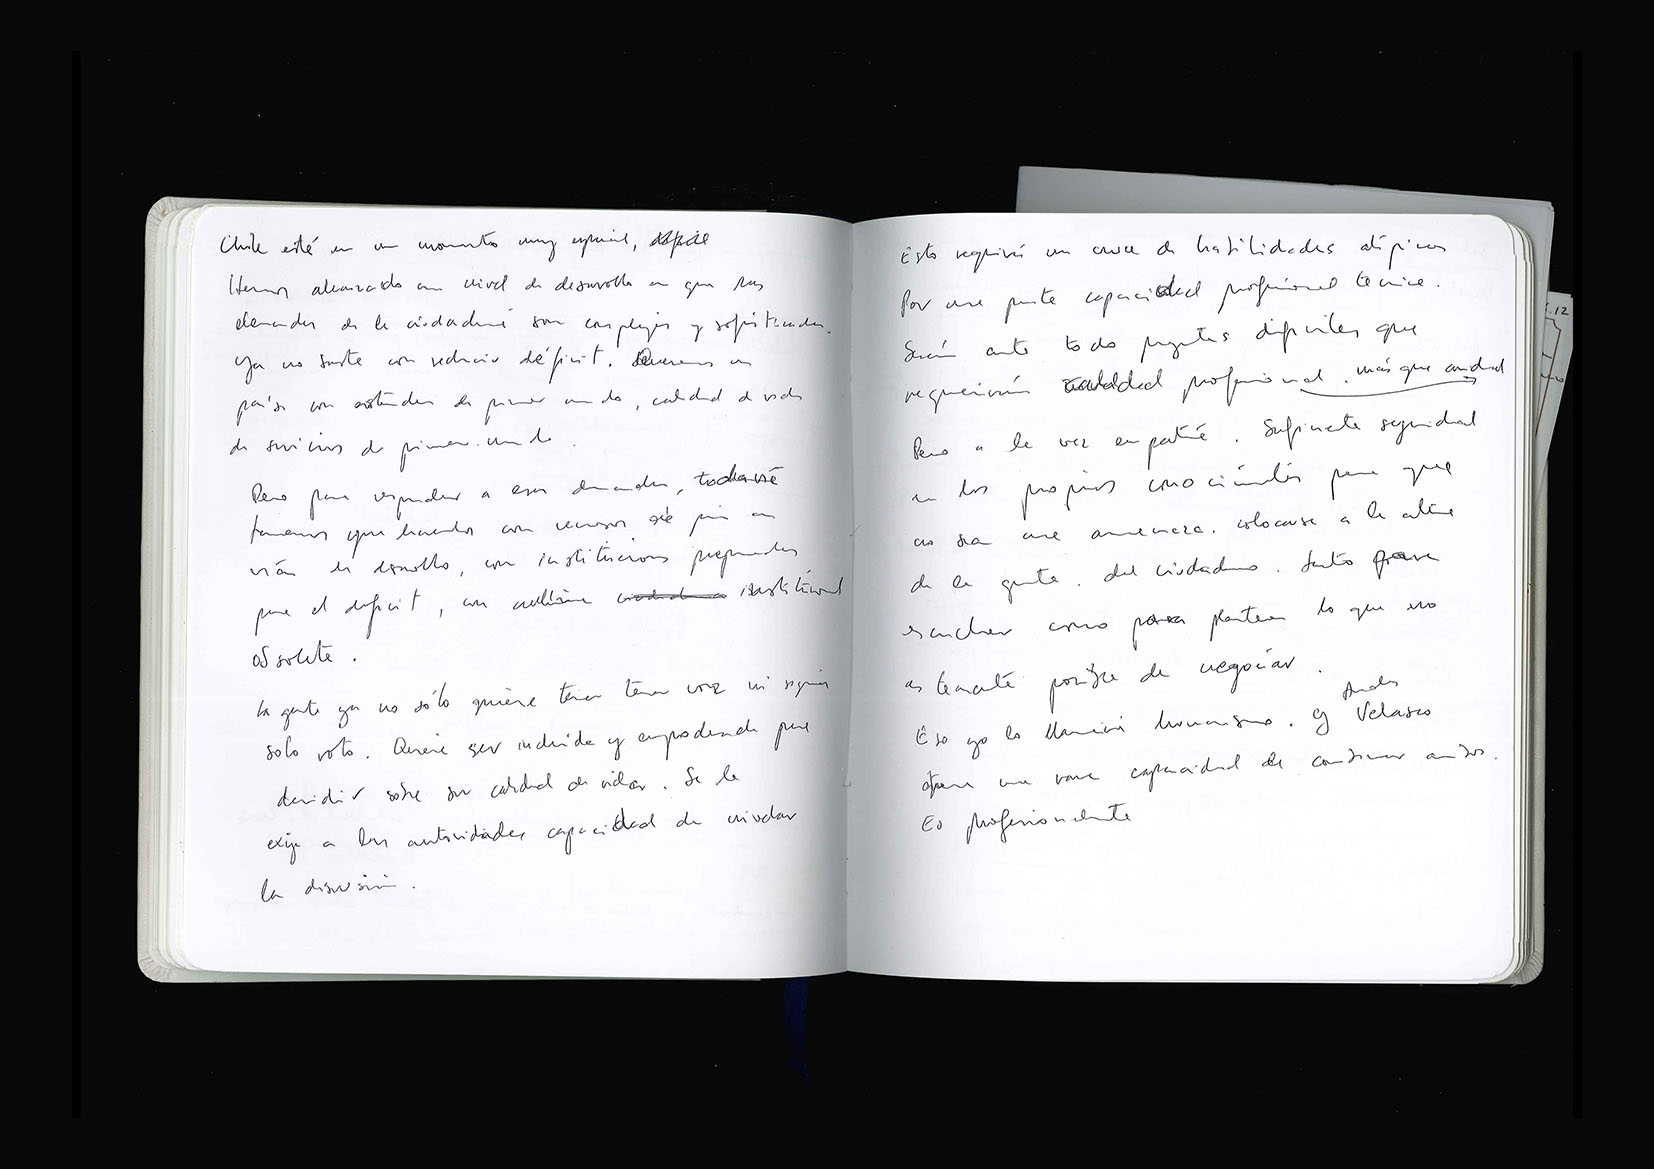 Chile está en un momento muy especial,
Hemos alcanzado un nivel de desarrollo en que las
demandas de la ciudadanía son complejas y sofisticadas.
Ya no basta con reducir déficit. Queremos un
país con estándar de primer mundo, calidad de vida
de servicios de primer mundo.
Pero para responder a esas demandas, todavía
tenemos que hacerlo con recursos de país en
vías de desarrollo, con instituciones preparadas
para el déficit, con institucional
obsoleta.
La gente ya no sólo quiere tener tener voz ni siquiera
solo voto. Quiere ser incluida y empoderada para
decidir sobre su calidad de vida. Se le
exige a las autoridades capacidad de nivelar
la discusión.
Esto requiere un cruce de habilidades atípicas
Por una parte capacidad profesional técnica.
Serán ante todo preguntas difíciles que
requerirán calidad profesional. más que
Pero a la vez empatía. Suficiente seguridad
en los propios conocimientos para que
no sea una amenaza colocarse a la altura
de la gente. del ciudadano. Tanto para
escuchar como para plantear lo que no
es posible de negociar.
Eso yo lo llamaría humanismo. Y Andrés Velasco
tiene una rara capacidad de combinar ambos.
Es profesionalmente